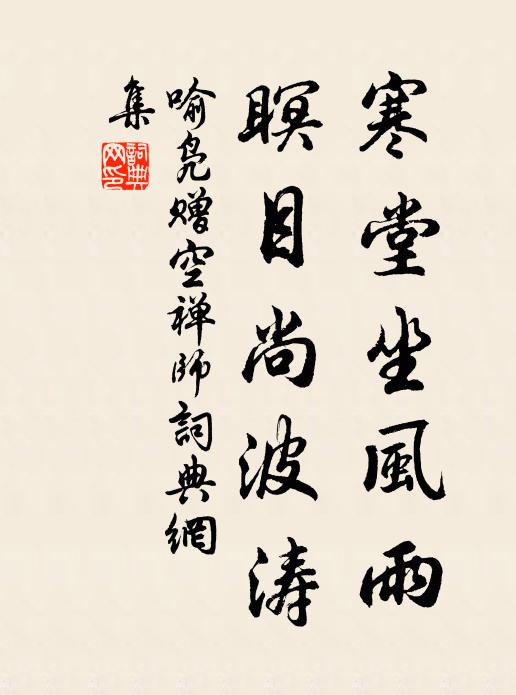 寒堂坐風雨
瞑目尚波濤
喻凫赠空禅师詞典網
集
詞典
网印